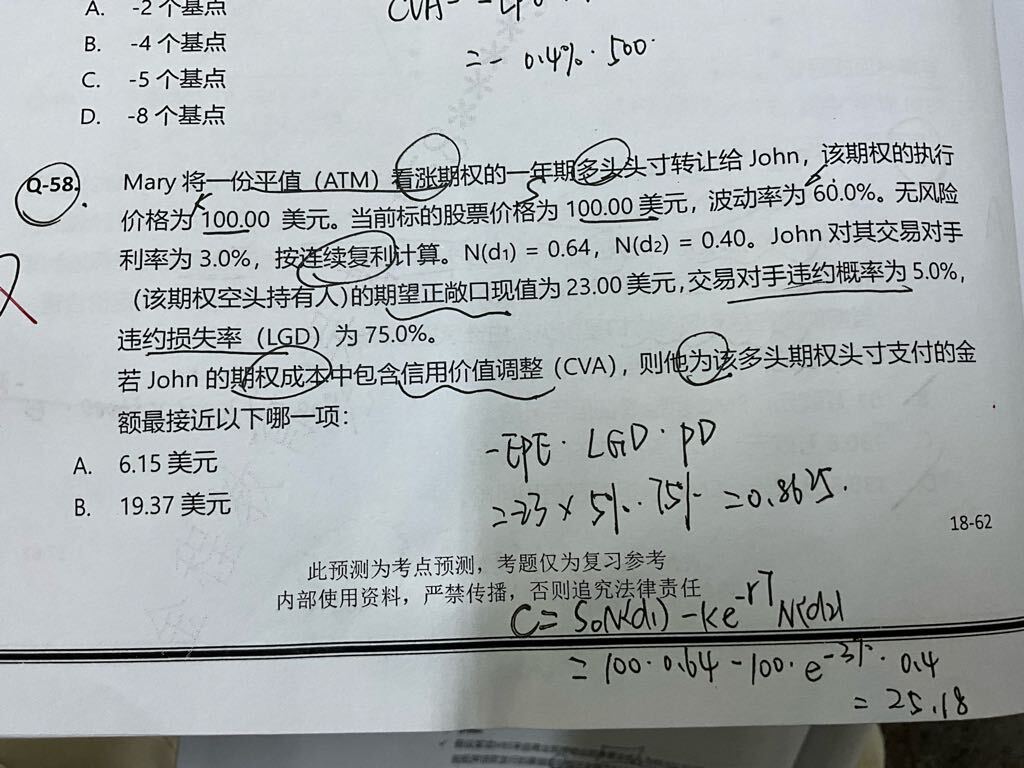 A. -2 个基点
CVA
B. -4 个基点
= - 0.4% · 500
C. -5 个基点
D. -8 个基点
Q-58. Mary 将一份平值（ATM）看涨期权的一年期多头头寸转让给 John，该期权的执行
价格为 100.00 美元。当前标的股票价格为 100.00 美元，波动率为 60.0%。无风险
利率为 3.0%，按连续复利计算。N(d₁) = 0.64，N(d₂) = 0.40。John 对其交易对手
（该期权空头持有人）的期望正敞口现值为 23.00 美元，交易对手违约概率为 5.0%，
违约损失率（LGD）为 75.0%。
若 John 的期权成本中包含信用价值调整（CVA），则他为该多头期权头寸支付的金
额最接近以下哪一项：
A. 6.15 美元
B. 19.37 美元
-EPE · LGD · PD
= -23 × 5% · 75% = 0.8625.
18-62
此预测为考点预测，考题仅为复习参考
内部使用资料，严禁传播，否则追究法律责任
C = S₀N(d₁) - Ke^{-rT} N(d₂)
= 100 · 0.64 - 100 · e^{-3%} · 0.4
= 25.18